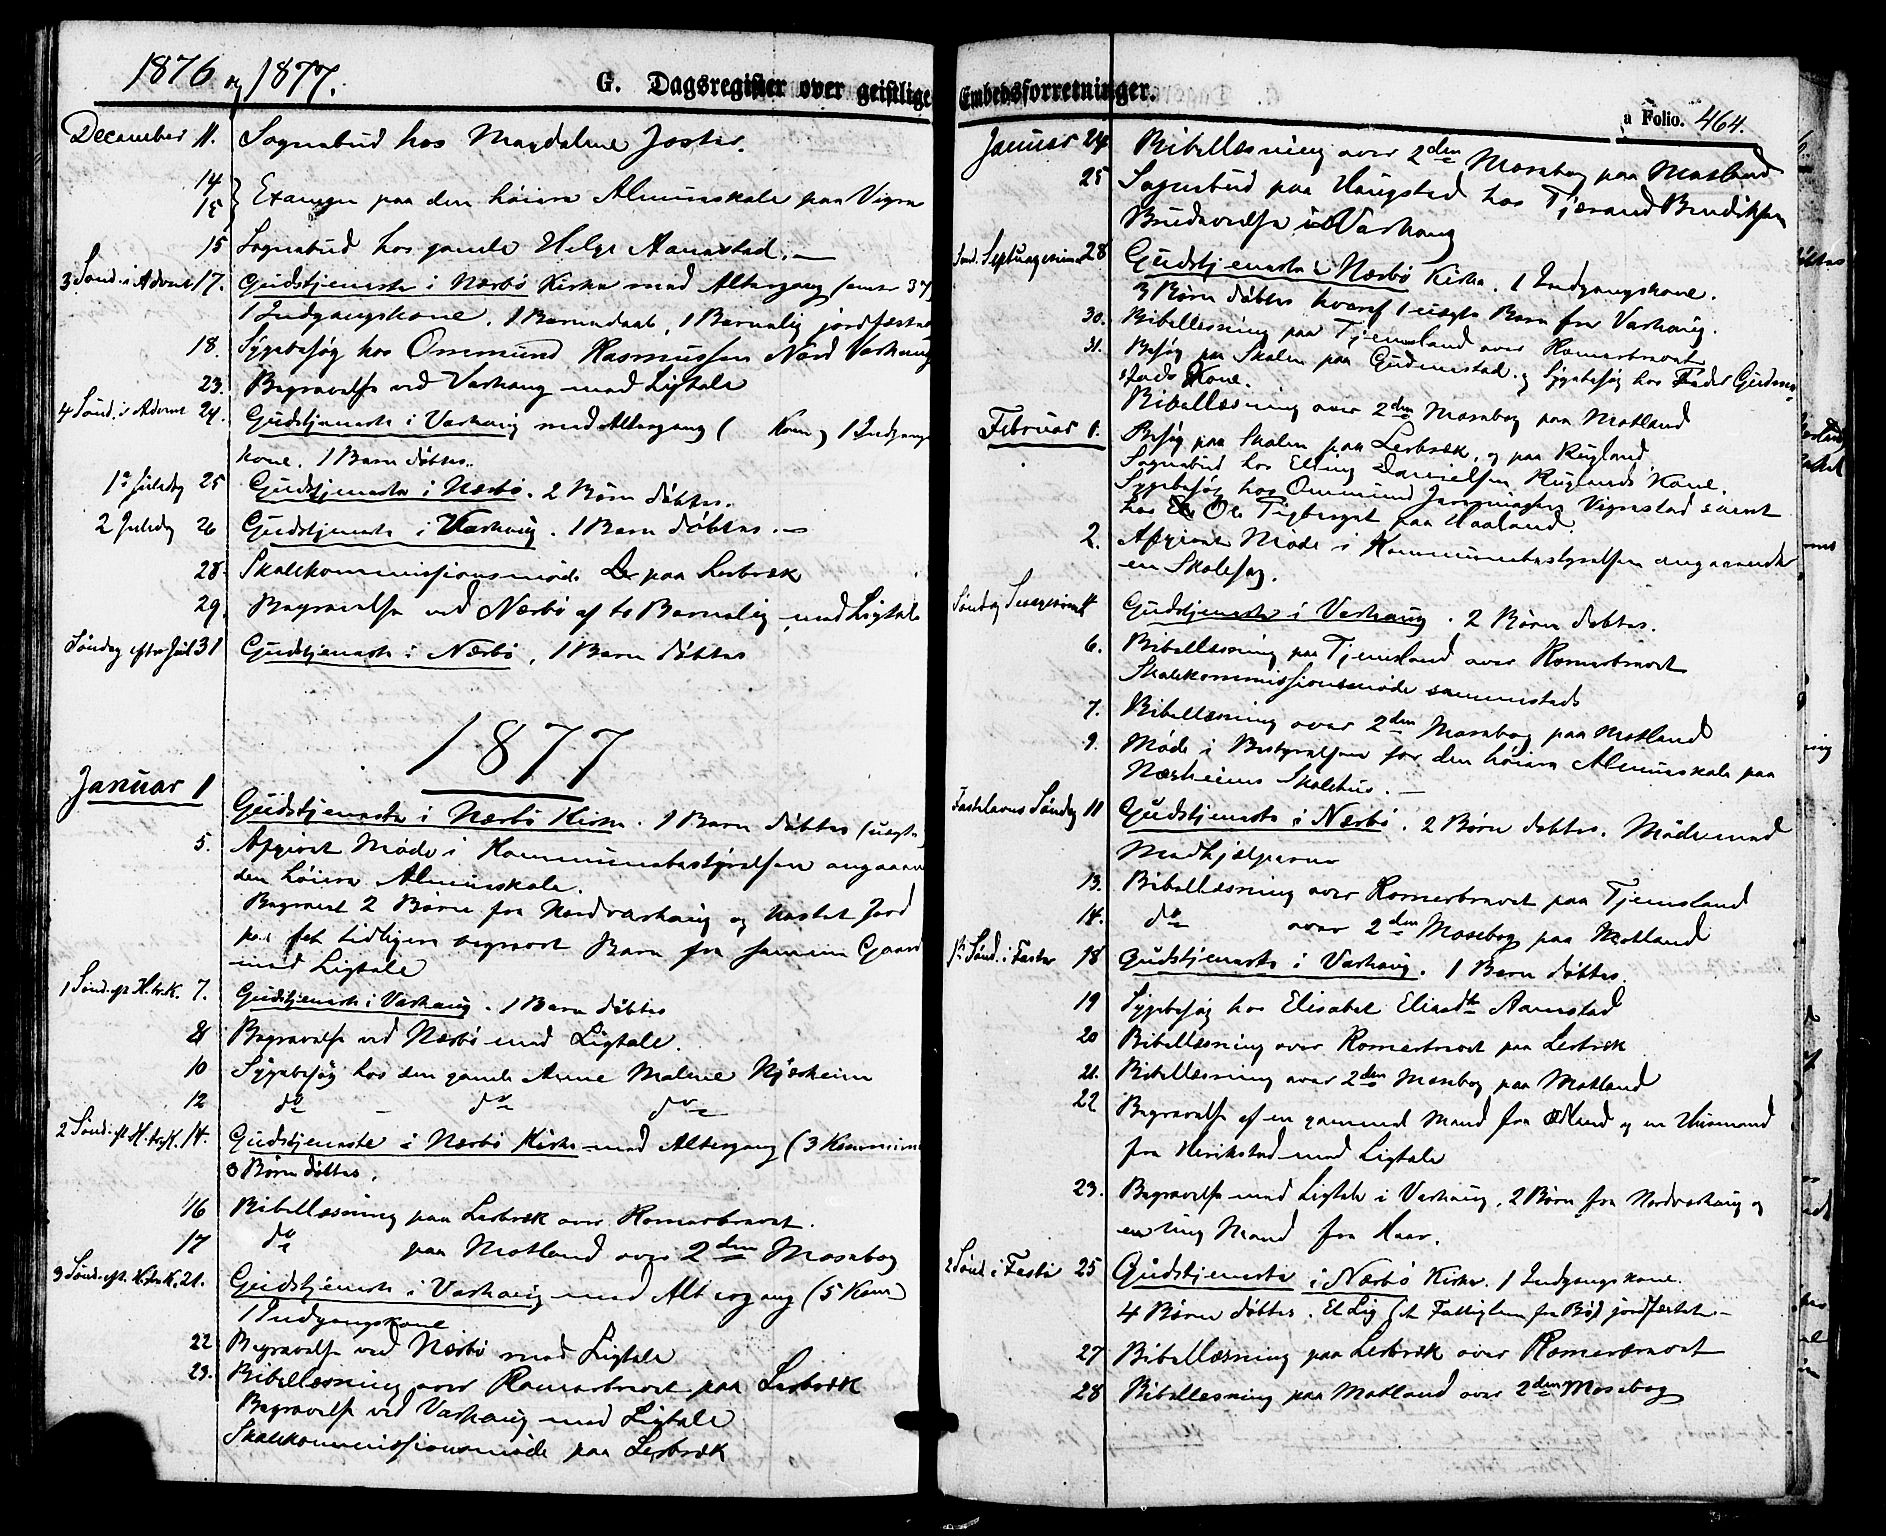 1876 og 1877.
G. Dagsregister over geistlige
December 11. Sognebud hos Magdalene
14 15 } Examen paa den høiere Almueskole paa Vigre
15 Sognebud hos gamle Helge Aanestad. —
3 Sønd. i Advent 17. Gudstjeneste i Nærbø Kirke med Altergang
1 Indgangskone. 1 Barnedaab, 1 Barnelig jordfæstet
18. Sygebesøg hos Ommund Rasmussen Nord Varhaug
23. Begravelse ved Varhaug med Ligtale
4 Sønd. i Advent 24. Gudstjeneste i Varhaug med Altergang ( Kom.) 1 Indgangs
kone. 1 Barn døbtes.
1ste Juledag 25 Gudstjeneste i Nærbø. 2 Børn døbtes.
2 Juledag 26 Gudstjeneste i Varhaug. 1 Barn døbtes. —
28. Skolekommissionsmøde paa Lerbræk
29. Begravelse ved Nærbø af to Barnelig med Ligtale
Søndag efter Jul 31 Gudstjeneste i Nærbø, 1 Barn døbtes
1877
Januar 1 Gudstjeneste i Nærbø Kirke. 1 Barn døbtes (uægte)
5. Afgivet Møde i Kommunebestyrelsen angaaende
den høiere Almueskole.
Begravet 2 Børn fra Nordvarhaug og kastet Jord
paa et tidligere begravet Barn fra samme Gaard
med Ligtale
1 Sønd. ef. H.tr.K. 7. Gudstjeneste i Varhaug. 1 Barn døbtes
8 Begravelse ved Nærbø med Ligtale.
10 Sygebesøg hos den gamle Anne Malene Njærheim
12 do — do do
2 Sønd. eft. H.tr.K. 14. Gudstjeneste i Nærbø Kirke med Altergang (3
3 Børn døbtes.
16 Bibellæsning paa Lerbræk over Romerbrevet.
17 do paa Motland over 2den Mosebog
3 Sønd. eft. H.tr.K. 21. Gudstjeneste i Varhaug med Altergang (5 Kom.)
1 Indgangskone
22 Begravelse ved Nærbø med Ligtale
23. Bibellæsning over Romerbrevet paa Lerbræk
Begravelse ved Varhaug med Ligtale
Skolekommissionsmøde paa Lerbræk
Embedsforretninger.
a Folio. 464.
Januar 24 Bibellæsning over 2den Mosebog paa Motland
25 Sognebud paa Haugstad hos Tjerand Bendiksen
Brudevielse i Varhaug
Sønd. Septuagesima 28 Gudstjeneste i Nærbø Kirke. 1 Indgangskone.
3 Børn døbtes hvoraf 1 uægte Barn fra Varhaug.
30. Bibellesning paa Tjemsland over Romerbrevet
31. Besøg paa Skolen paa Gudmestad. og Sygebesøg hos Gudme-
stads Kone.
Bibellæsning over 2den Mosebog paa Motland
Februar 1. Besøg paa Skolen paa Lerbræk. og paa Rugland
Sognebud hos Elling Danielsen Ruglands Kone.
Sygebesøg hos Ommund Vigrestad samt
hos Ole Tuberget paa Haaland.
2. Afgivet Møde i Kommunebestyrelsen angaaende
en Skolesag.
Søndag Sexagesima 4 Gudstjeneste i Varhaug. 2 Børn døbtes.
6. Bibellæsning paa Tjemsland over Romerbrevet
Skolekommissionsmøde sammestads
7. Bibellæsning over 2den Mosebog paa Motland
9. Møde i Bestyrelsen for den høiere Almueskole paa
Nærheims Skolehus. —
Fastelavns Søndag 11 Gudstjeneste i Nærbø. 2 Børn døbtes. Møde med
Medhjælperne
13. Bibellæsning over Romerbrevet paa Tjemsland
14. do over 2den Mosebog paa Motland
1ste Sønd. i Faste 18 Gudstjeneste i Varhaug. 1 Barn døbtes.
19 Sygebesøg hos Elisabet Eliasdtr Aanestad
20 Bibellæsning over Romerbrevet paa Lerbræk
21. Bibellæsning over 2den Mosebog paa Motland
22 Begravelse af en gammel Mand fra Ødland og en Husmand
fra Herikstad med Ligtale
23. Begravelse med Ligtale i Varhaug. 2 Børn fra Nordvarhaug og
en ung Mand fra Haar.
2 Sønd. i Faste 25 Gudstjeneste i Nærbø Kirke. 1 Indgangskone.
4 Børn døbtes. Et Lig (et Fattiglem fra Bø) jordfæstet —
27 Bibellæsning paa Lerbræk over Romerbrevet
28 Bibellæsning paa Motland over 2den Mosebog